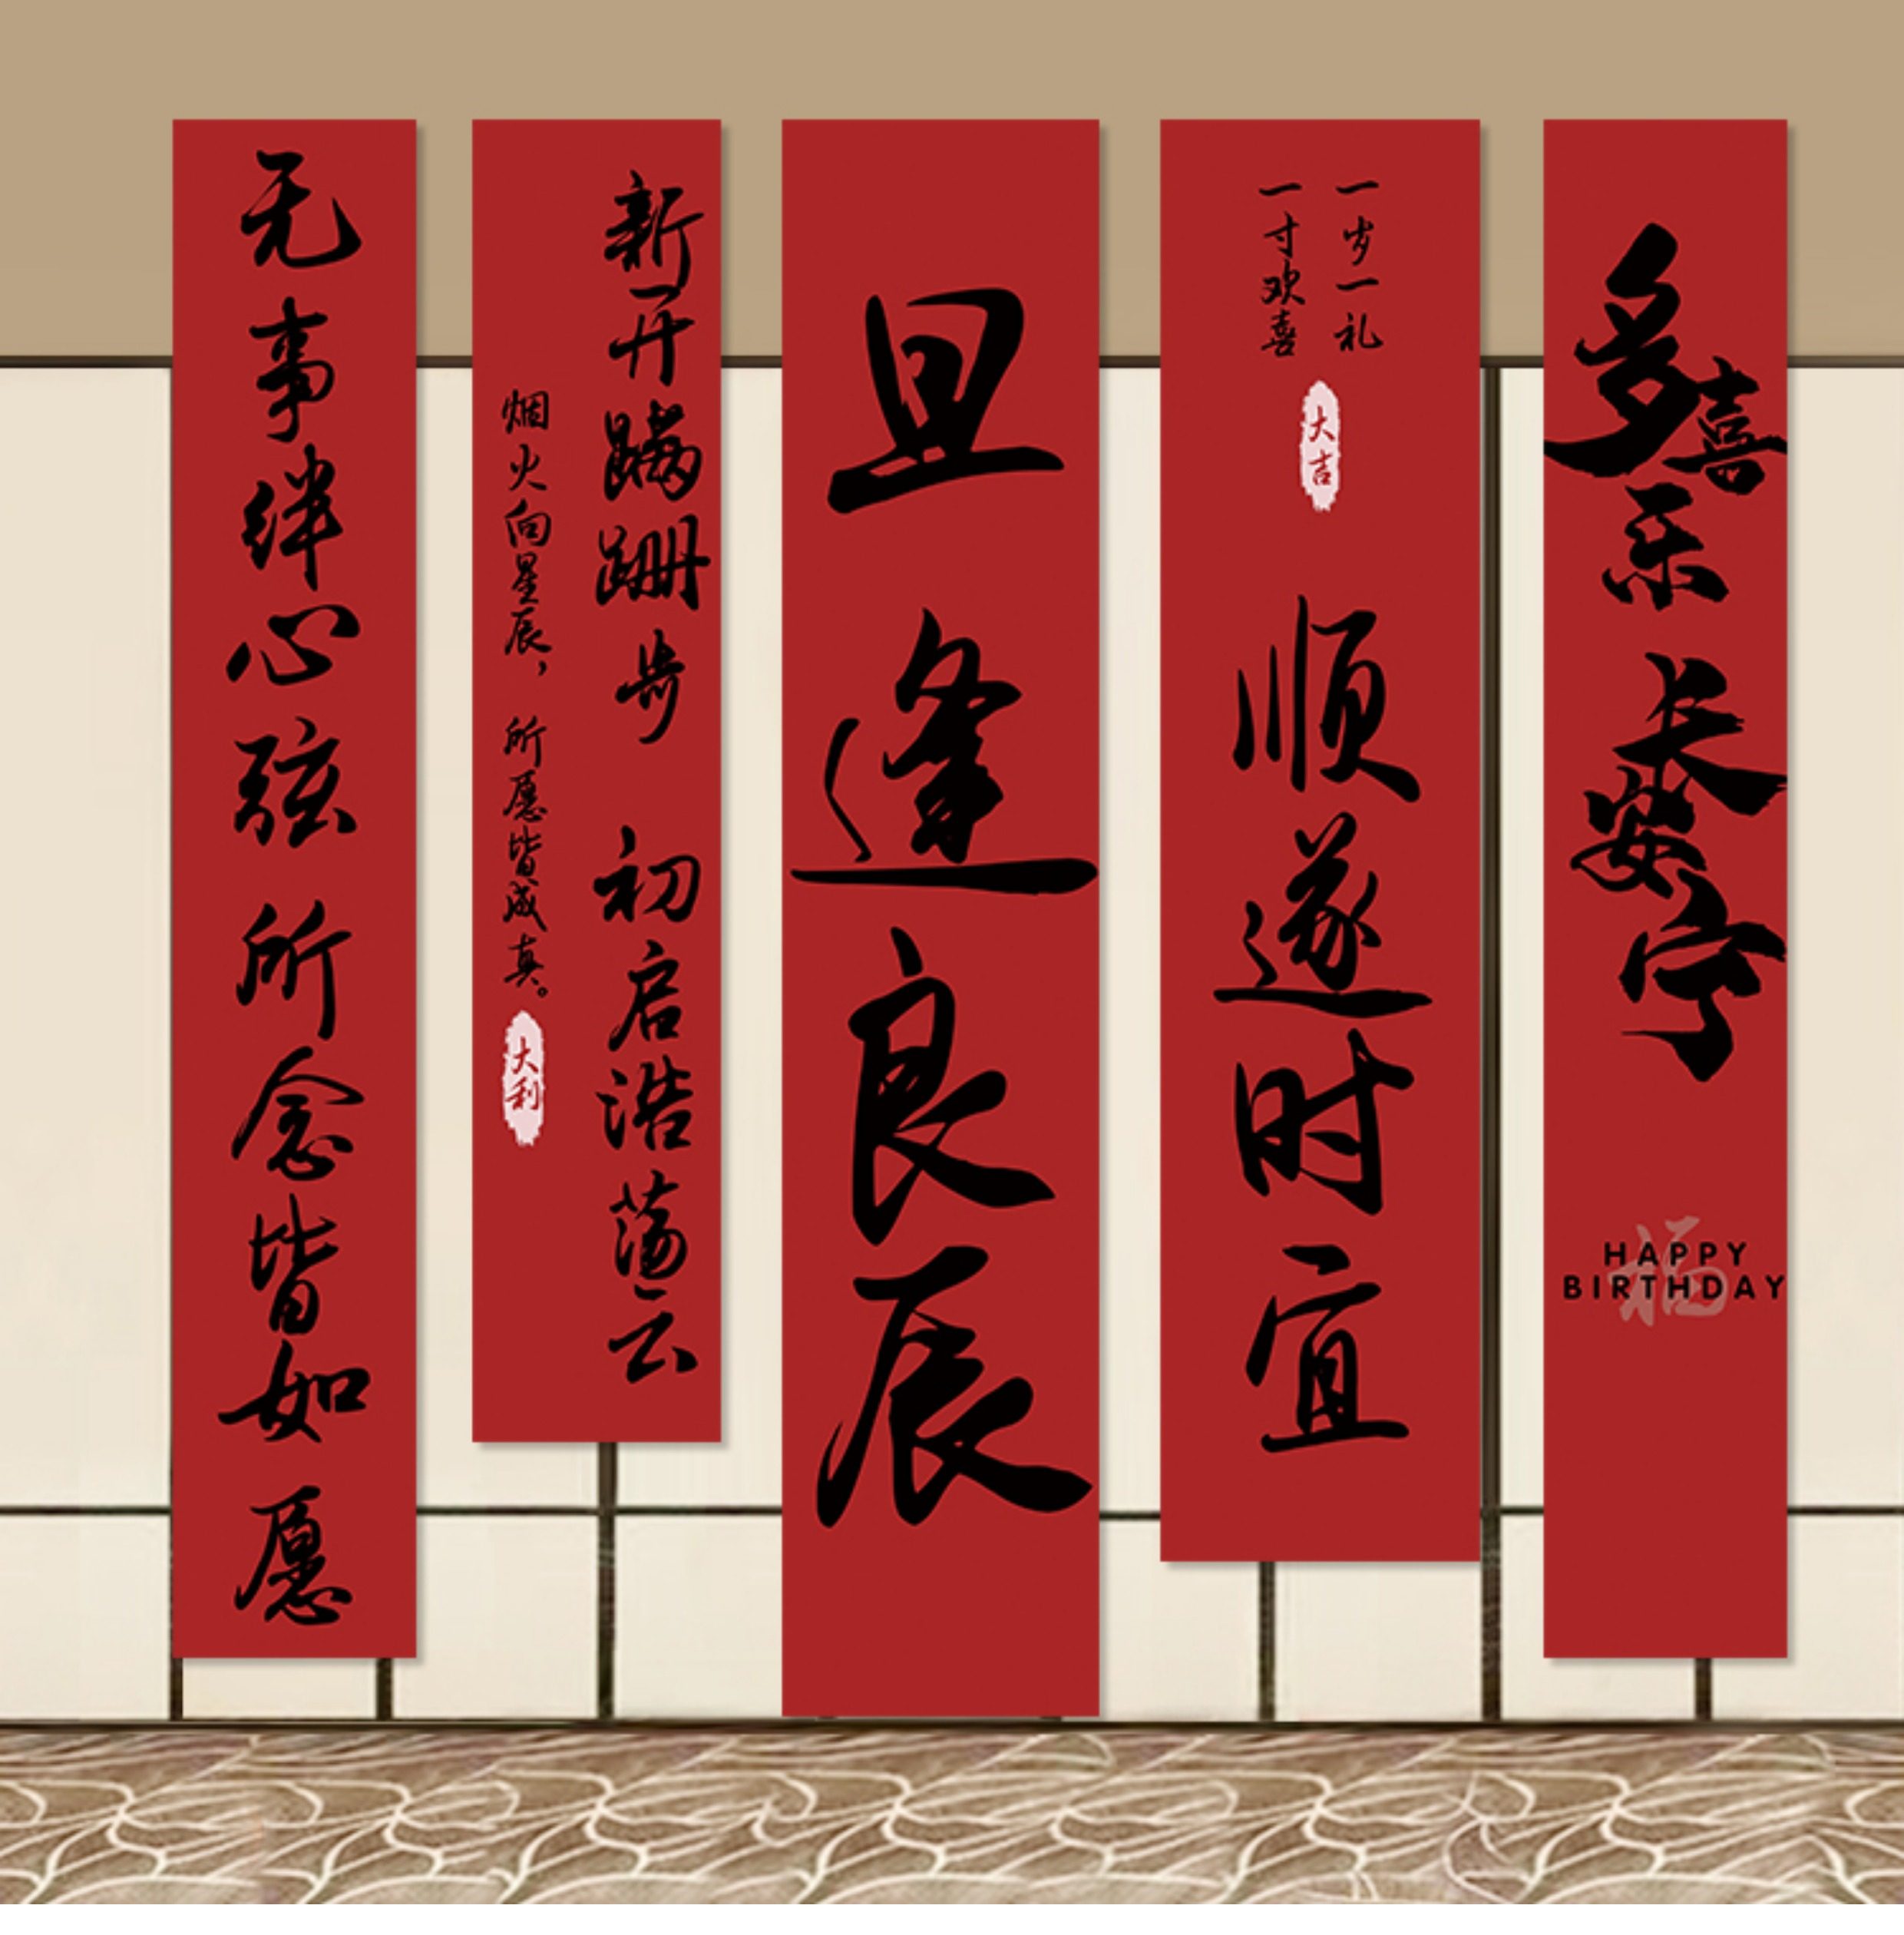 无事绊心弦 所念皆如愿
新开蹒跚步 初启浩荡云
烟火向星辰，所愿皆成真。
大利
且逢良辰
一岁一礼
一寸欢喜
大吉
顺遂时宜
多喜乐
长安宁
福
HAPPY
BIRTHDAY